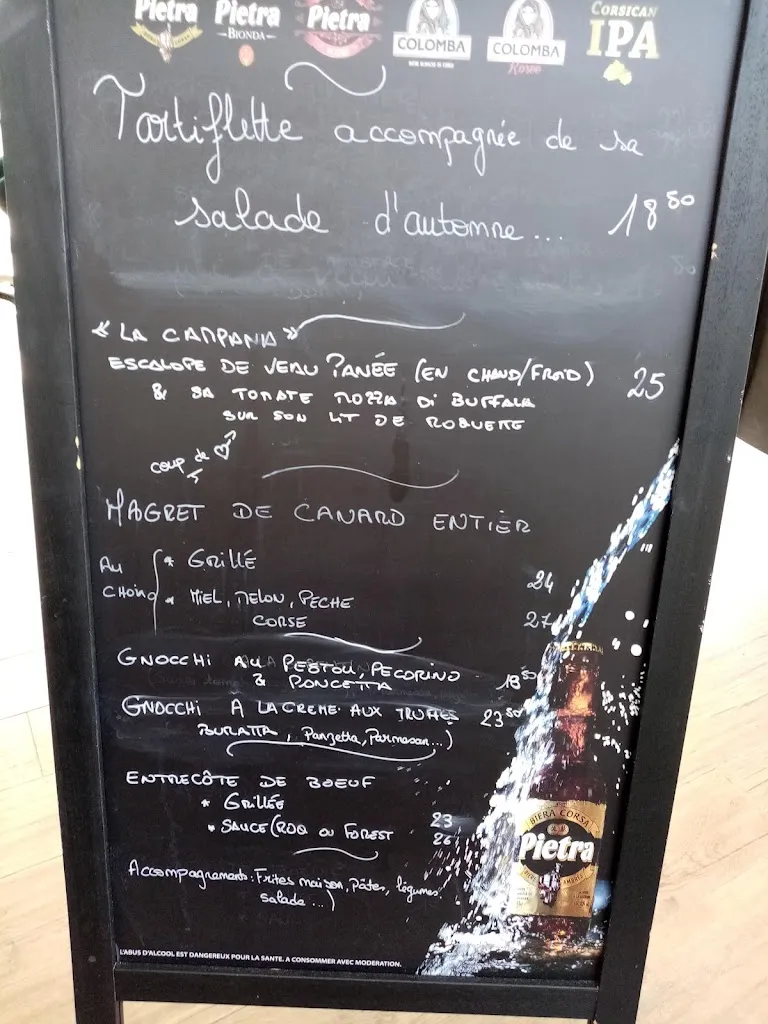 Pietra
Pietra
BIONDA
Pietra
COLOMBA
COLOMBA
Rosée
CORSICAN
IPA
Tartiflette accompagnée de sa
salade d'automne... 18 50
« LA CAMPANA »
ESCALOPE DE VEAU PANÉE (EN CHAUD/FROID) 25
& SA TOMATE MOZZA DI BUFFALA
SUR SON LIT DE ROQUETTE
coup de ♡
MAGRET DE CANARD ENTIER
AU CHOIX
* GRILLÉ 24
* MIEL, MELON, PECHE
CORSE 27
GNOCCHI AU PESTOU, PECORINO
& PONCETTA 18 50
GNOCCHI A LA CREME AUX TRUFFES 23 50
BURATTA, Panzetta, Parmesan...)
ENTRECÔTE DE BOEUF
* GRILLÉE 23
* SAUCE (ROQ OU FOREST 26
Accompagnements: Frites maison, Pâtes, légumes,
salade...)
BIERA CORSA
Pietra
L'ABUS D'ALCOOL EST DANGEREUX POUR LA SANTE. A CONSOMMER AVEC MODERATION.